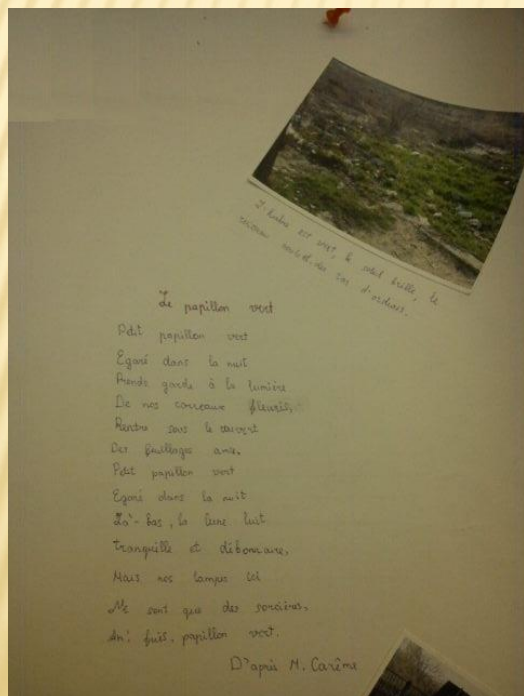 L'herbe est vert, le soleil brille, le
ruisseau
d'ordures.
Le papillon vert
Petit papillon vert
Egaré dans la nuit
Prends garde à la lumière
De nos carreaux fleuris,
Rentre sous le couvert
Des feuillages amis,
Petit papillon vert
Egaré dans la nuit
Là-bas, la lune luit
tranquille et débonnaire,
Mais nos lampes ici
Ne sont que des sorcières,
Ah! fuis, papillon vert.
D'après M. Carême